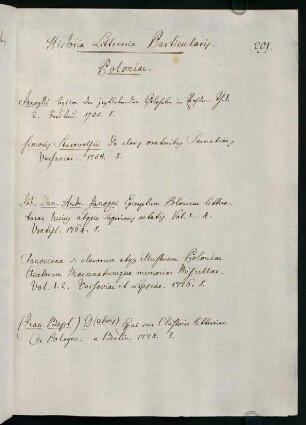 Historia Litteraria Particularis.
201.
Poloniae.
Lexicon der jeztlebenden Gelehrten in Pohlen. Th. 1.
2. Breslau. 1755. 8.
Simonis Starovolsii De claris oratoribus Sarmatiae
Varsaviae. 1758. 8.
Joh. Dan. Andr. Janozki Excerptum Polonicae littera-
turae huius atque superioris aetatis. Vol. 1 - 4.
Vratisl. 1764. 8.
Janociana s. clarorum atque illustrium Poloniae
Auctorum Maecenatumque memoriae Miscellae.
Vol. 1. 2. Varsaviae et Lipsiae. 1776. 8.
(Jean Baptt.) D(ubois) Essai sur l'histoire litteraire
de Pologne. a Berlin. 1778. 8.